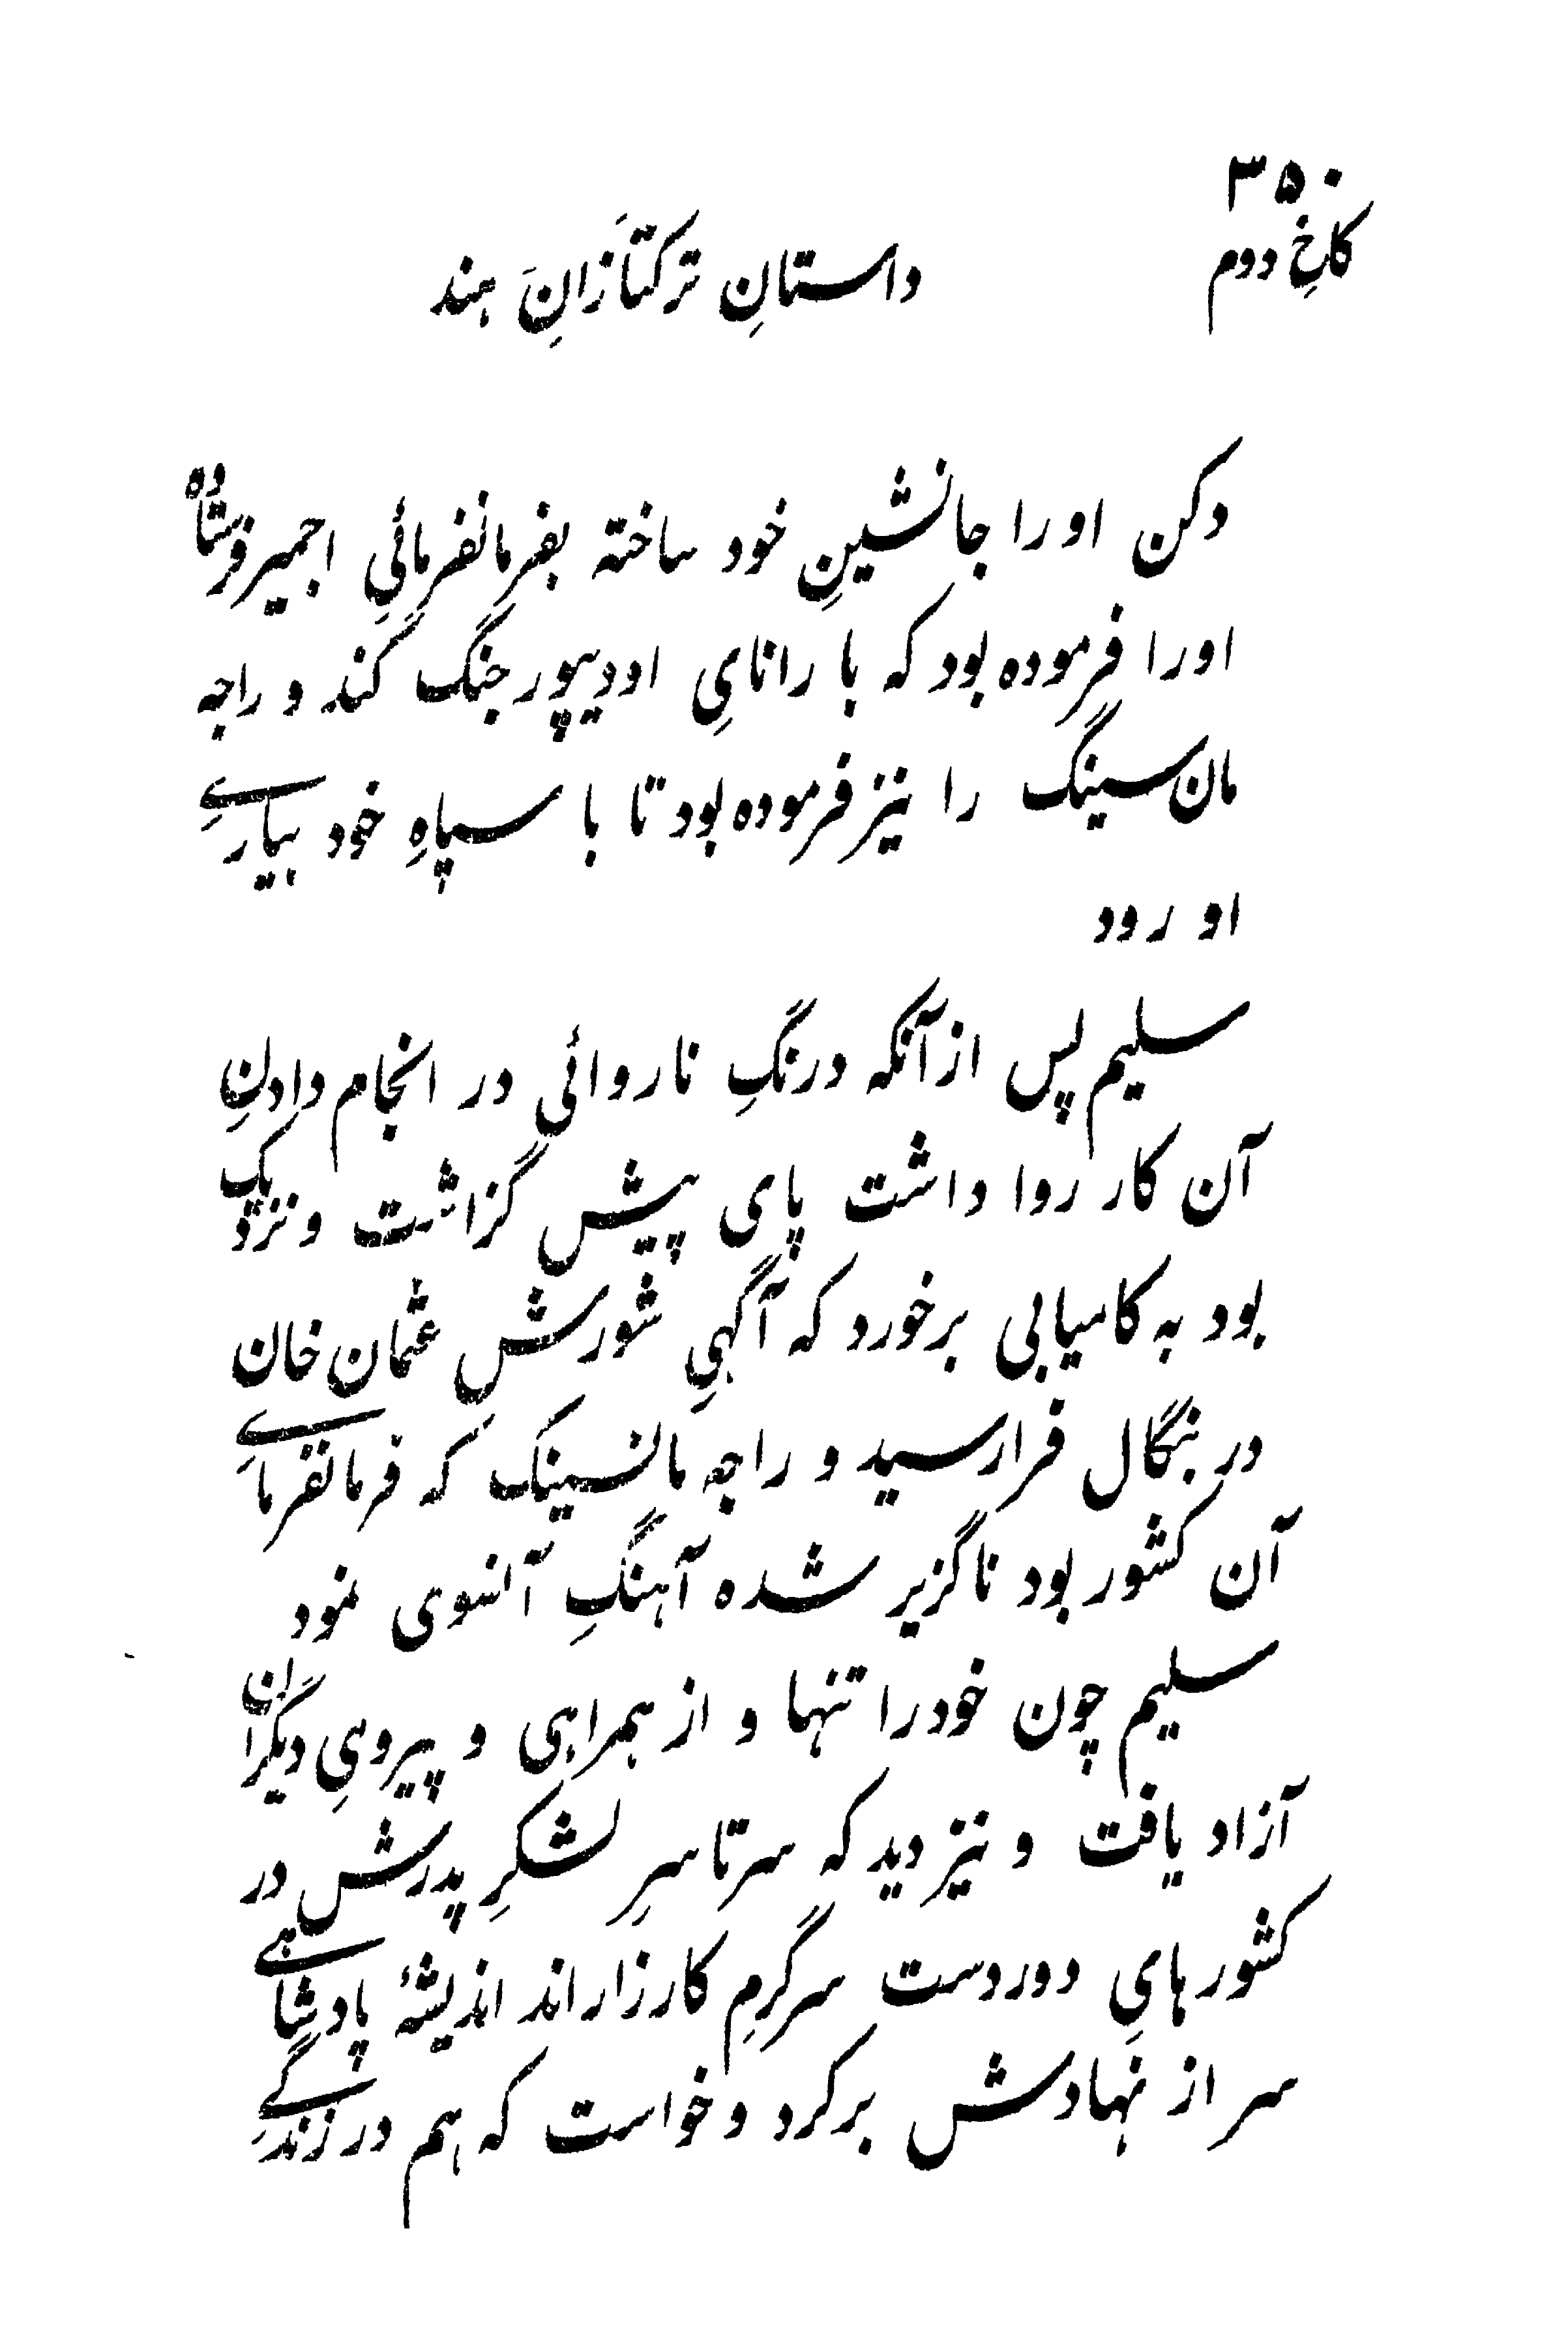 ۳۵۰
کاخِ دوم
داستانِ ترکتازانِ هند
دکن اورا جانشینِ خود ساخته بفرمانفرمائیِ اجمیر فرستاده
اورا فرموده بود که با رانایِ اودیپور جنگ کند و راجه
مان سینگ را نیز فرموده بود تا با سپاهِ خود بیاریِ
او رود
سلیم پس ازآنکه درنگِ ناروائی در انجام دادنِ
آن کار روا داشت پای پیش گزاشت و نزدیک
بود به کامیابی برخورد که آگهیِ شورش عثمان خان
در بنگال فرارسید و راجه مانسینگ که فرمانفرمایِ
آن کشور بود ناگزیر شده آهنگِ آنسوی نمود
سلیم چون خودرا تنها و از همراهی و پیرویِ دیگران
آزاد یافت و نیز دید که سرتاسرِ لشکرِ پدرش در
کشورهایِ دوردست سرگرمِ کارزاراند اندیشهٔ پادشاهی
سر از نهادش برکرد و خواست که هم در زندگیِ